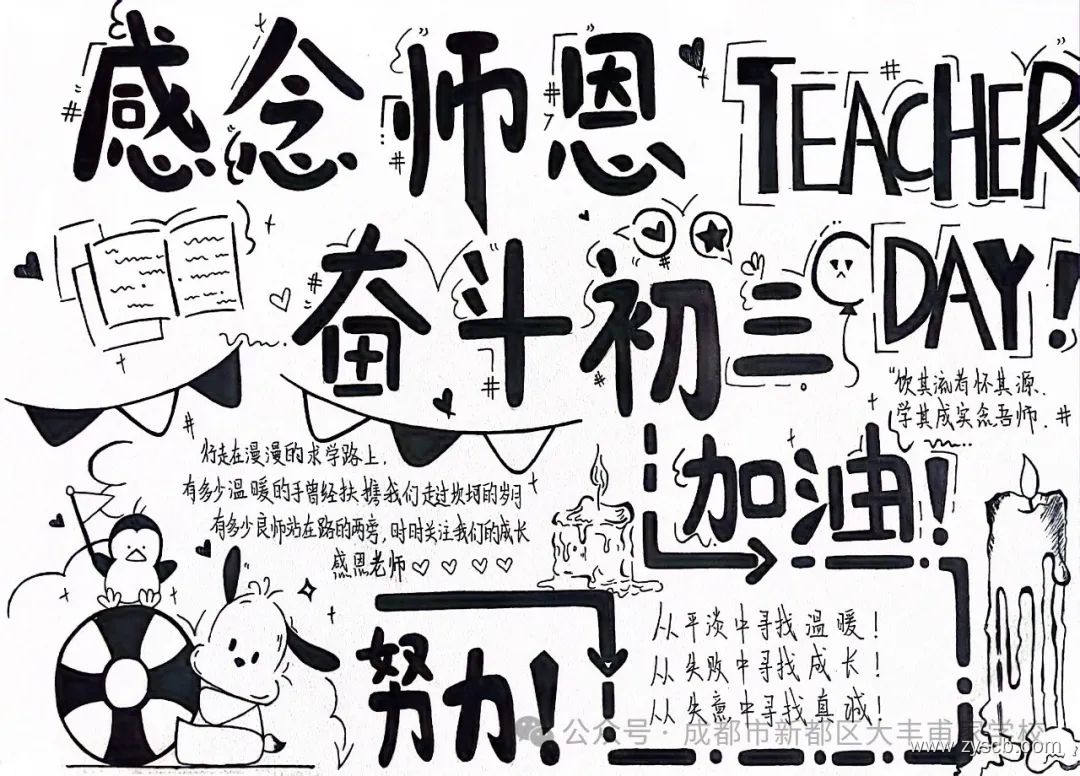 感念师恩
TEACHER
DAY!
奋斗初三
"饮其流者怀其源、
学其成实念吾师.
行走在漫漫的求学路上,
有多少温暖的手曾经扶携我们走过坎坷的岁月
有多少良师站在路的两旁,时时关注我们的成长
感恩老师♡♡♡♡
加油!
努力!
从平淡中寻找温暖!
从失败中寻找成长!
从失意中寻找真诚!
公众号·成都市新都区大丰甫家学校
www.zyscb.com